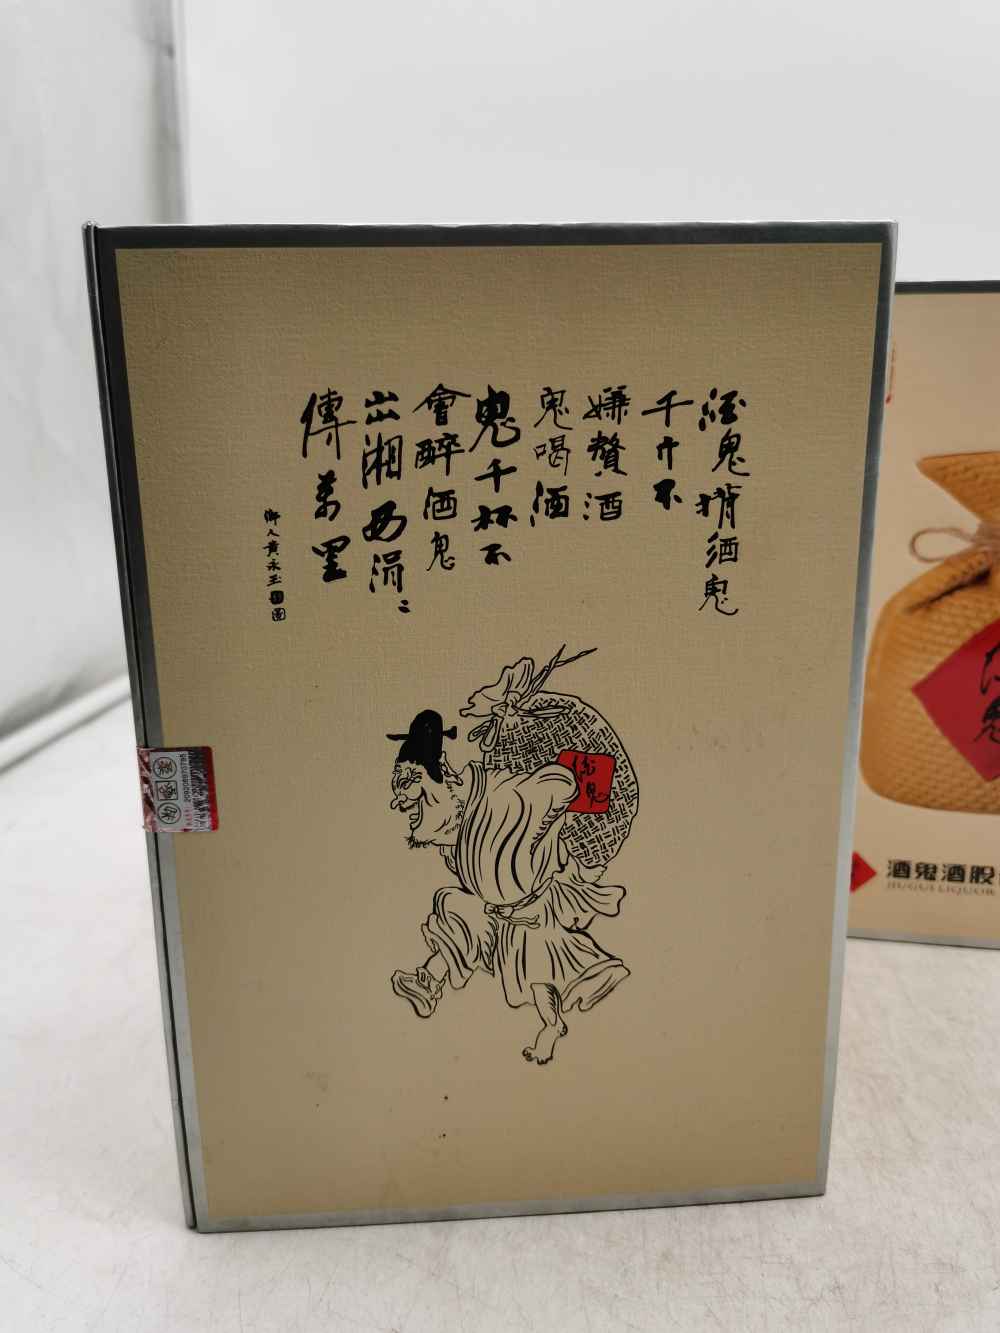 酒鬼揹酒鬼
千斤不
嫌贅酒
鬼喝酒
鬼千杯不
會醉酒鬼
出湘西涓〻
傳萬里
鄉人黄永玉
酒鬼
酒鬼
酒鬼酒股
JIUGUI LIQUOR